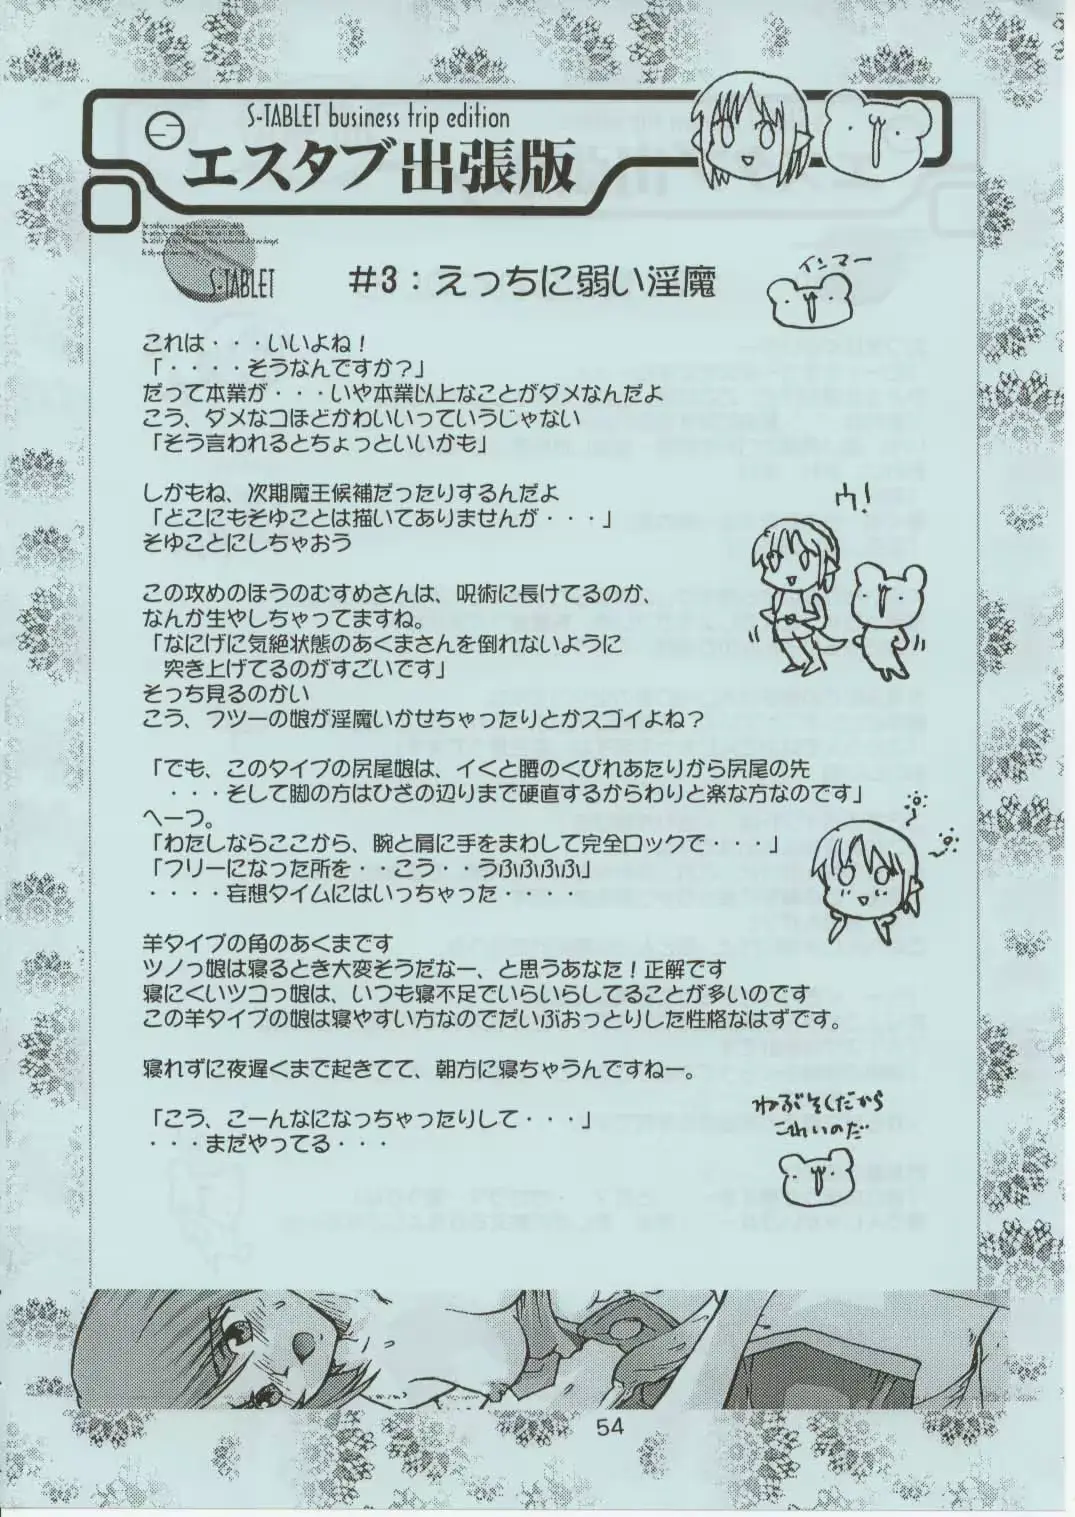 S-TABLET business trip edition
エスタブ出張版
S-TABLET
#3：えっちに弱い淫魔
インマー
これは・・・いいよね！
「・・・・そうなんですか？」
だって本業が・・・いや本業以上なことがダメなんだよ
こう、ダメなコほどかわいいっていうじゃない
「そう言われるとちょっといいかも」
しかもね、次期魔王候補だったりするんだよ
「どこにもそゆことは描いてありませんが・・・」
そゆことにしちゃおう
ウ！
この攻めのほうのむすめさんは、呪術に長けてるのか、
なんか生やしちゃってますね。
「なにげに気絶状態のあくまさんを倒れないように
突き上げてるのがすごいです」
そっち見るのかい
こう、フツーの娘が淫魔いかせちゃったりとかスゴイよね？
「でも、このタイプの尻尾娘は、イくと腰のくびれあたりから尻尾の先
・・・そして脚の方はひざの辺りまで硬直するからわりと楽な方なのです」
へーっ。
「わたしならここから、腕と肩に手をまわして完全ロックで・・・」
「フリーになった所を・・こう・・うふふふふ」
・・・・妄想タイムにはいっちゃった・・・・
羊タイプの角のあくまです
ツノっ娘は寝るとき大変そうだなー、と思うあなた！正解です
寝にくいツコっ娘は、いつも寝不足でいらいらしてることが多いのです
この羊タイプの娘は寝やすい方なのでだいぶおっとりした性格なはずです。
寝れずに夜遅くまで起きてて、朝方に寝ちゃうんですねー。
「こう、こーんなになっちゃったりして・・・」
・・・まだやってる・・・
ねぶそくだから
こわいのだ
54